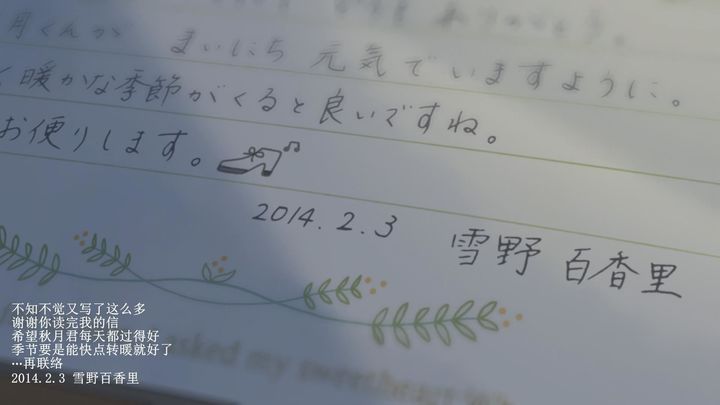 月くんが まいにち 元気でいますように。
く暖かな季節がくると良いですね。
お便りします。
2014.2.3 雪野 百香里
asked my sweetheart
不知不觉又写了这么多
谢谢你读完我的信
希望秋月君每天都过得好
季节要是能快点转暖就好了
…再联络
2014.2.3 雪野百香里